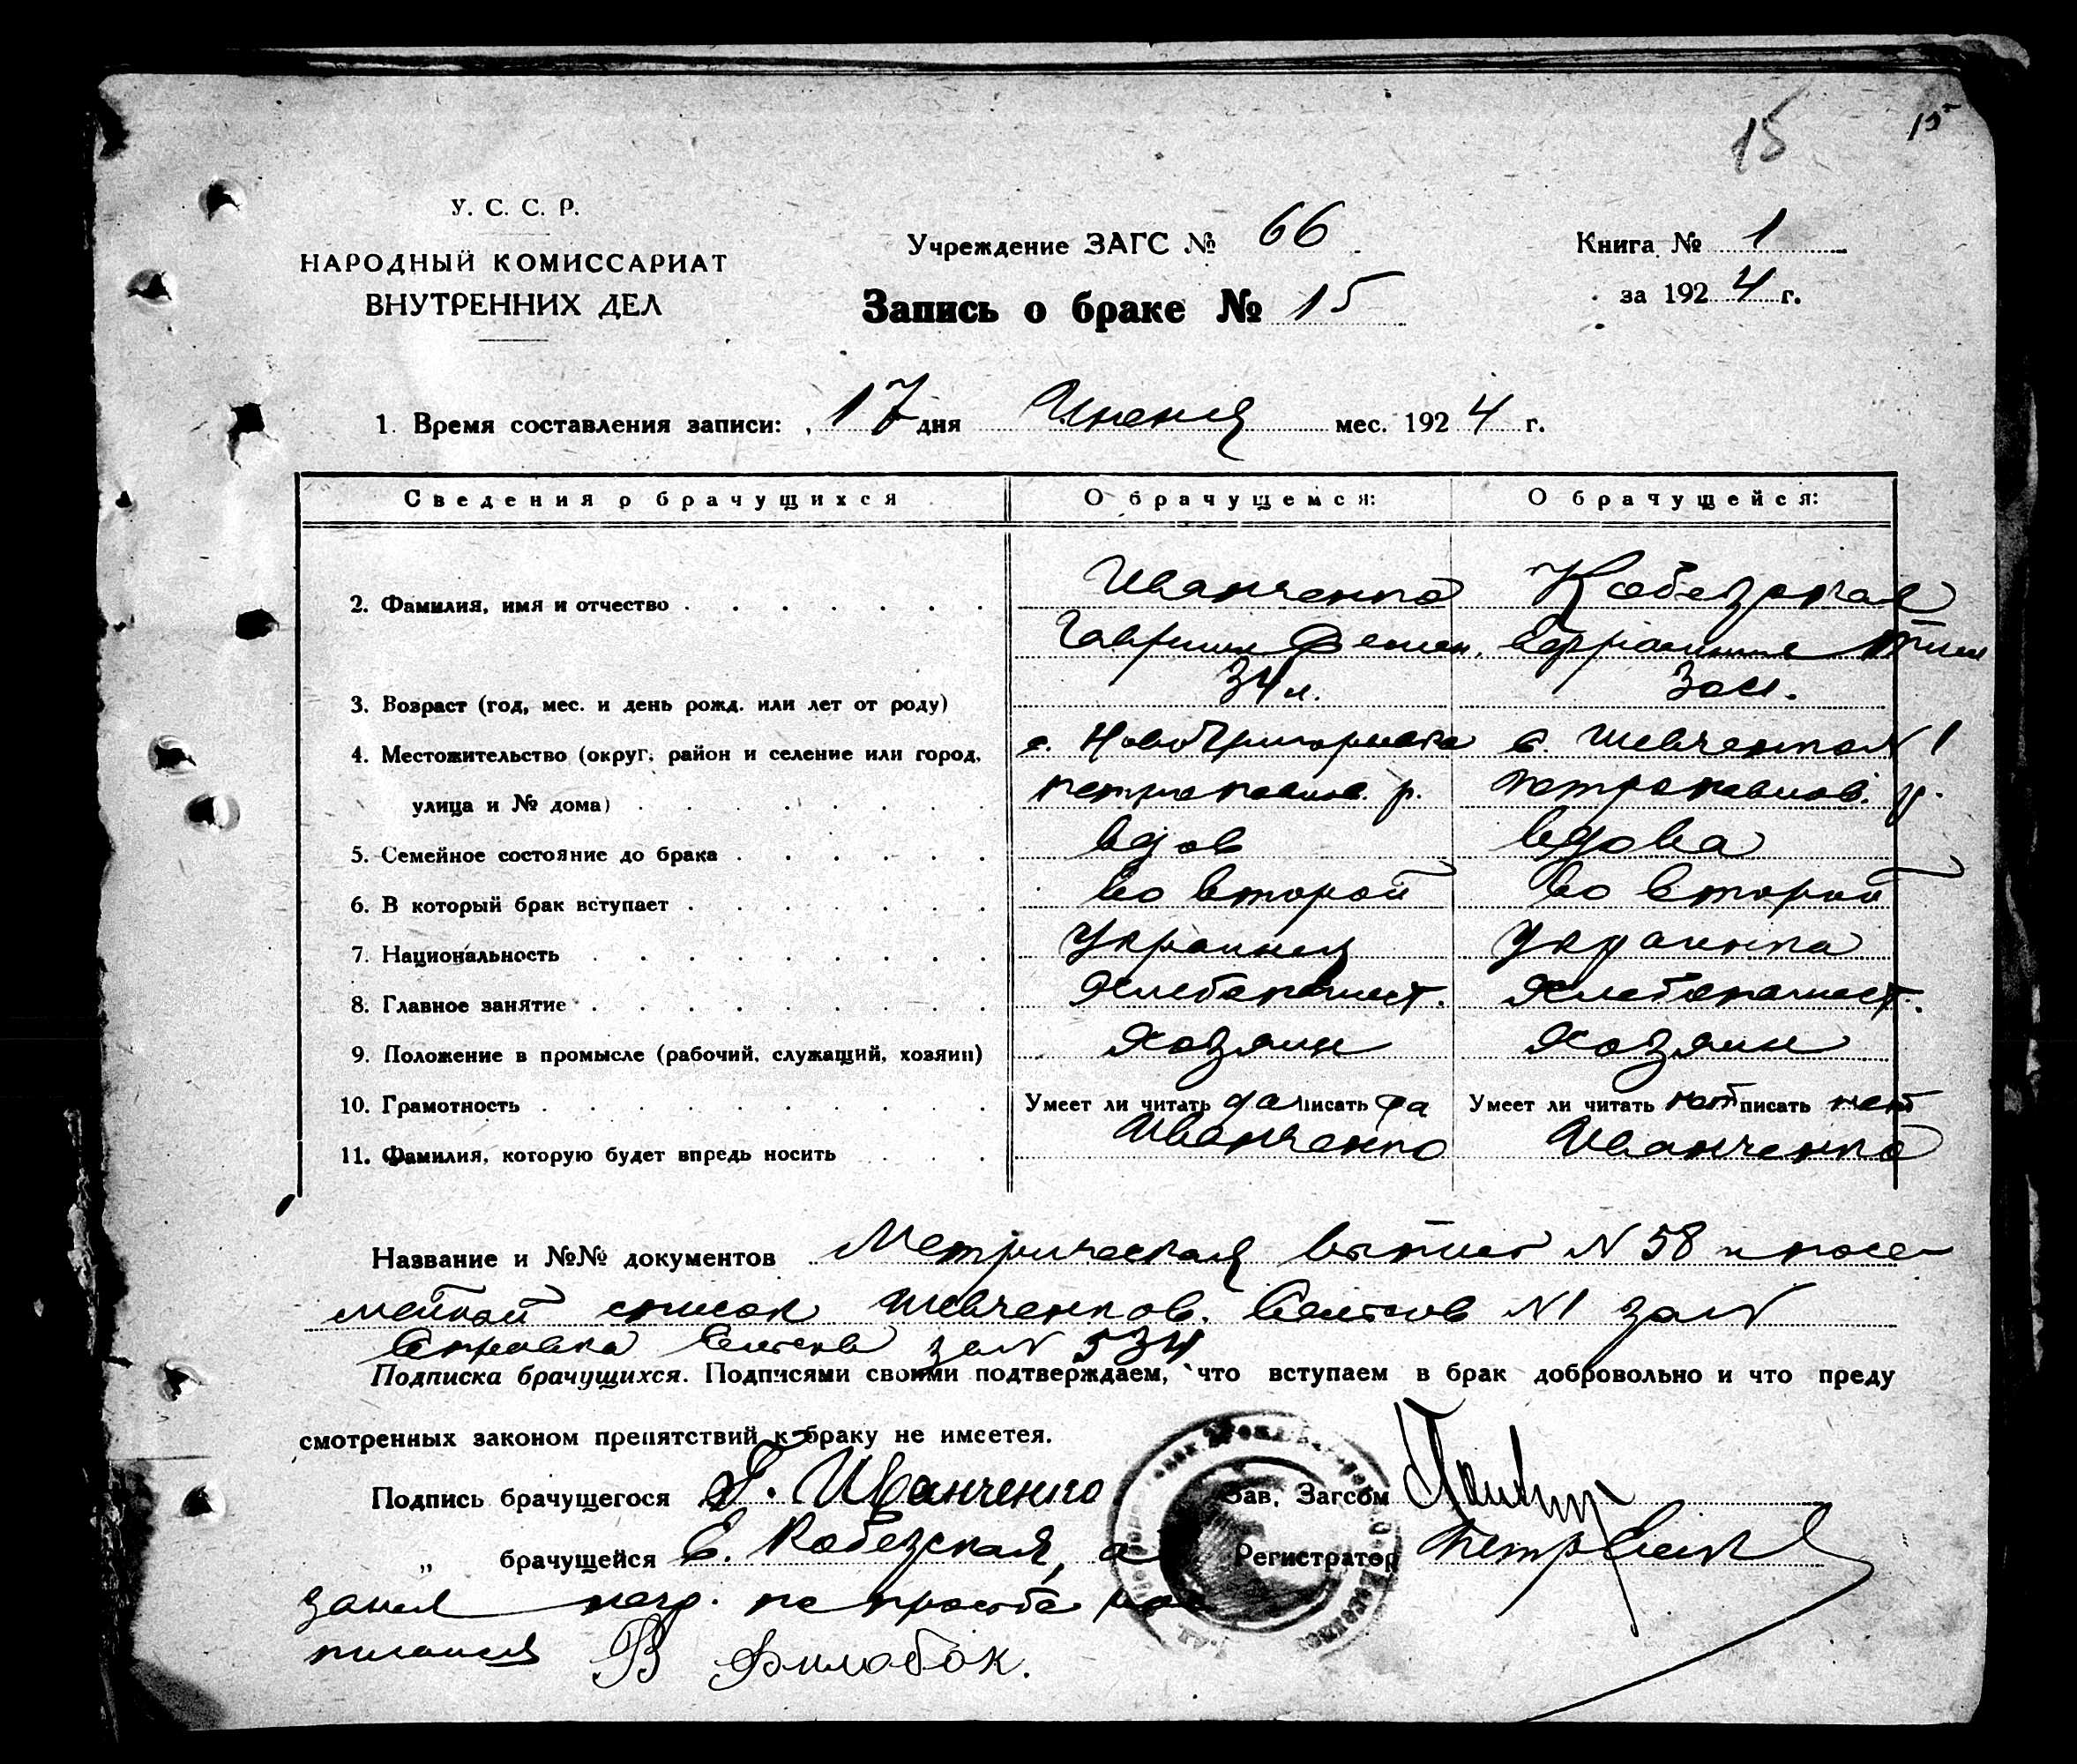 15 15
У. С. С. Р.
НАРОДНЫЙ КОМИССАРИАТ
ВНУТРЕННИХ ДЕЛ
Учреждение ЗАГС № 66
Книга № 1
Запись о браке № 15
за 1924 г.
1. Время составления записи: 17 дня Июня мес. 1924 г.
Сведения о брачущихся О брачущемся: О брачущейся:
2. Фамилия, имя и отчество Иванченко Кобезская
Гавриил Семен.
3. Возраст (год, мес. и день рожд. или лет от роду) 34 л. 30 л.
4. Местожительство (округ, район и селение или город, с. Новогригорьевка с. Шевченко № 1
улица и № дома) петропавлов. р. петропавлов. р.
5. Семейное состояние до брака вдов вдова
6. В который брак вступает во второй во второй
7. Национальность Украинец Украинка
8. Главное занятие Хлебопашест. Хлебопашест.
9. Положение в промысле (рабочий, служащий, хозяин) Хозяин Хозяин
10. Грамотность Умеет ли читать да писать да Умеет ли читать нет писать нет
11. Фамилия, которую будет впредь носить Иванченко Иванченко
Название и №№ документов Метрическая выпись N 58 и посе
мейной список Шевченков. Сельсов N1 за N
Справка Сельсов за N 534
Подписка брачущихся. Подписями своими подтверждаем, что вступаем в брак добровольно и что преду
смотренных законом препятствий к браку не имеетея.
Подпись брачущегося Г. Иванченко Зав. Загсом
„ брачущейся Е. Кобезская, а Регистратор
занея негр. по просьбе рос
писался В Билобок.